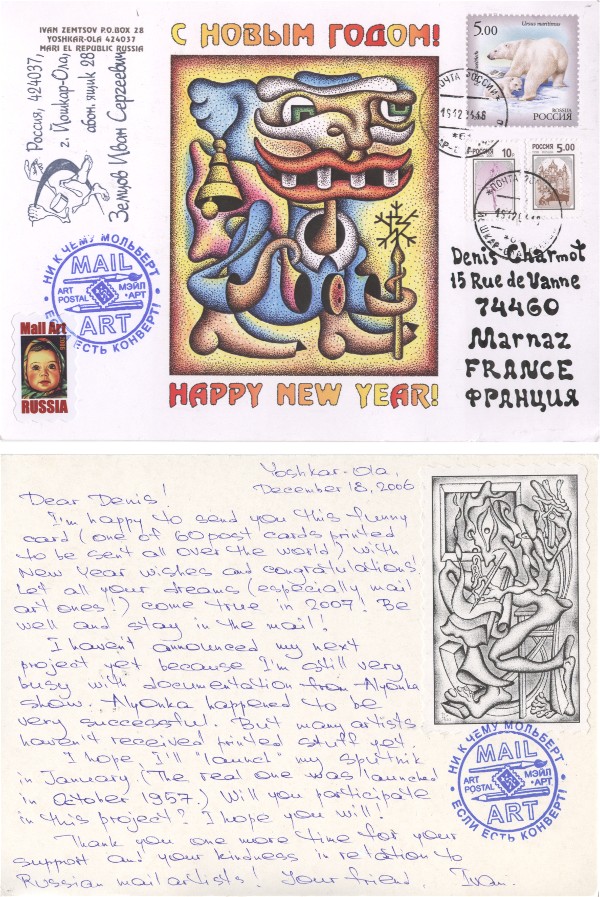 IVAN ZEMTSOV P.O.BOX 28
YOSHKAR-OLA 424037
MARI EL REPUBLIC RUSSIA
Россия, 424037,
г. Йошкар-Ола,
абон. ящик 28
Земцов Иван Сергеевич
С НОВЫМ ГОДОМ!
HAPPY NEW YEAR!
5.00
Ursus maritimus
РОССИЯ
РОССИЯ 10
РОССИЯ 5.00
ПОЧТА РОССИИ
НИ К ЧЕМУ МОЛЬБЕРТ
MAIL
ART POSTAL
МЭЙЛ АРТ
ART
ЕСЛИ ЕСТЬ КОНВЕРТ!
Mail Art
RUSSIA
Denis Charmot
15 Rue de Vanne
74460
Marnaz
FRANCE
ФРАНЦИЯ
Yoshkar-Ola,
December 18, 2006
Dear Denis!
I'm happy to send you this funny
card (one of 60 post cards printed
to be sent all over the world) with
New Year wishes and congratulations!
Let all your dreams (especially mail
art ones!) come true in 2007! Be
well and stay in the mail!
I haven't announced my next
project yet because I'm still very
busy with documentation from Alyonka
show. Alyonka happened to be
very successful. But many artists
haven't received printed stuff yet.
I hope I'll "launch" my sputnik
in January (The real one was launched
in October 1957.) Will you participate
in this project? I hope you will!
Thank you one more time for your
support and your kindness in relation to
Russian mail artists! Your friend, Ivan.
НИ К ЧЕМУ МОЛЬБЕРТ
MAIL
ART POSTAL
МЭЙЛ АРТ
ART
ЕСЛИ ЕСТЬ КОНВЕРТ!